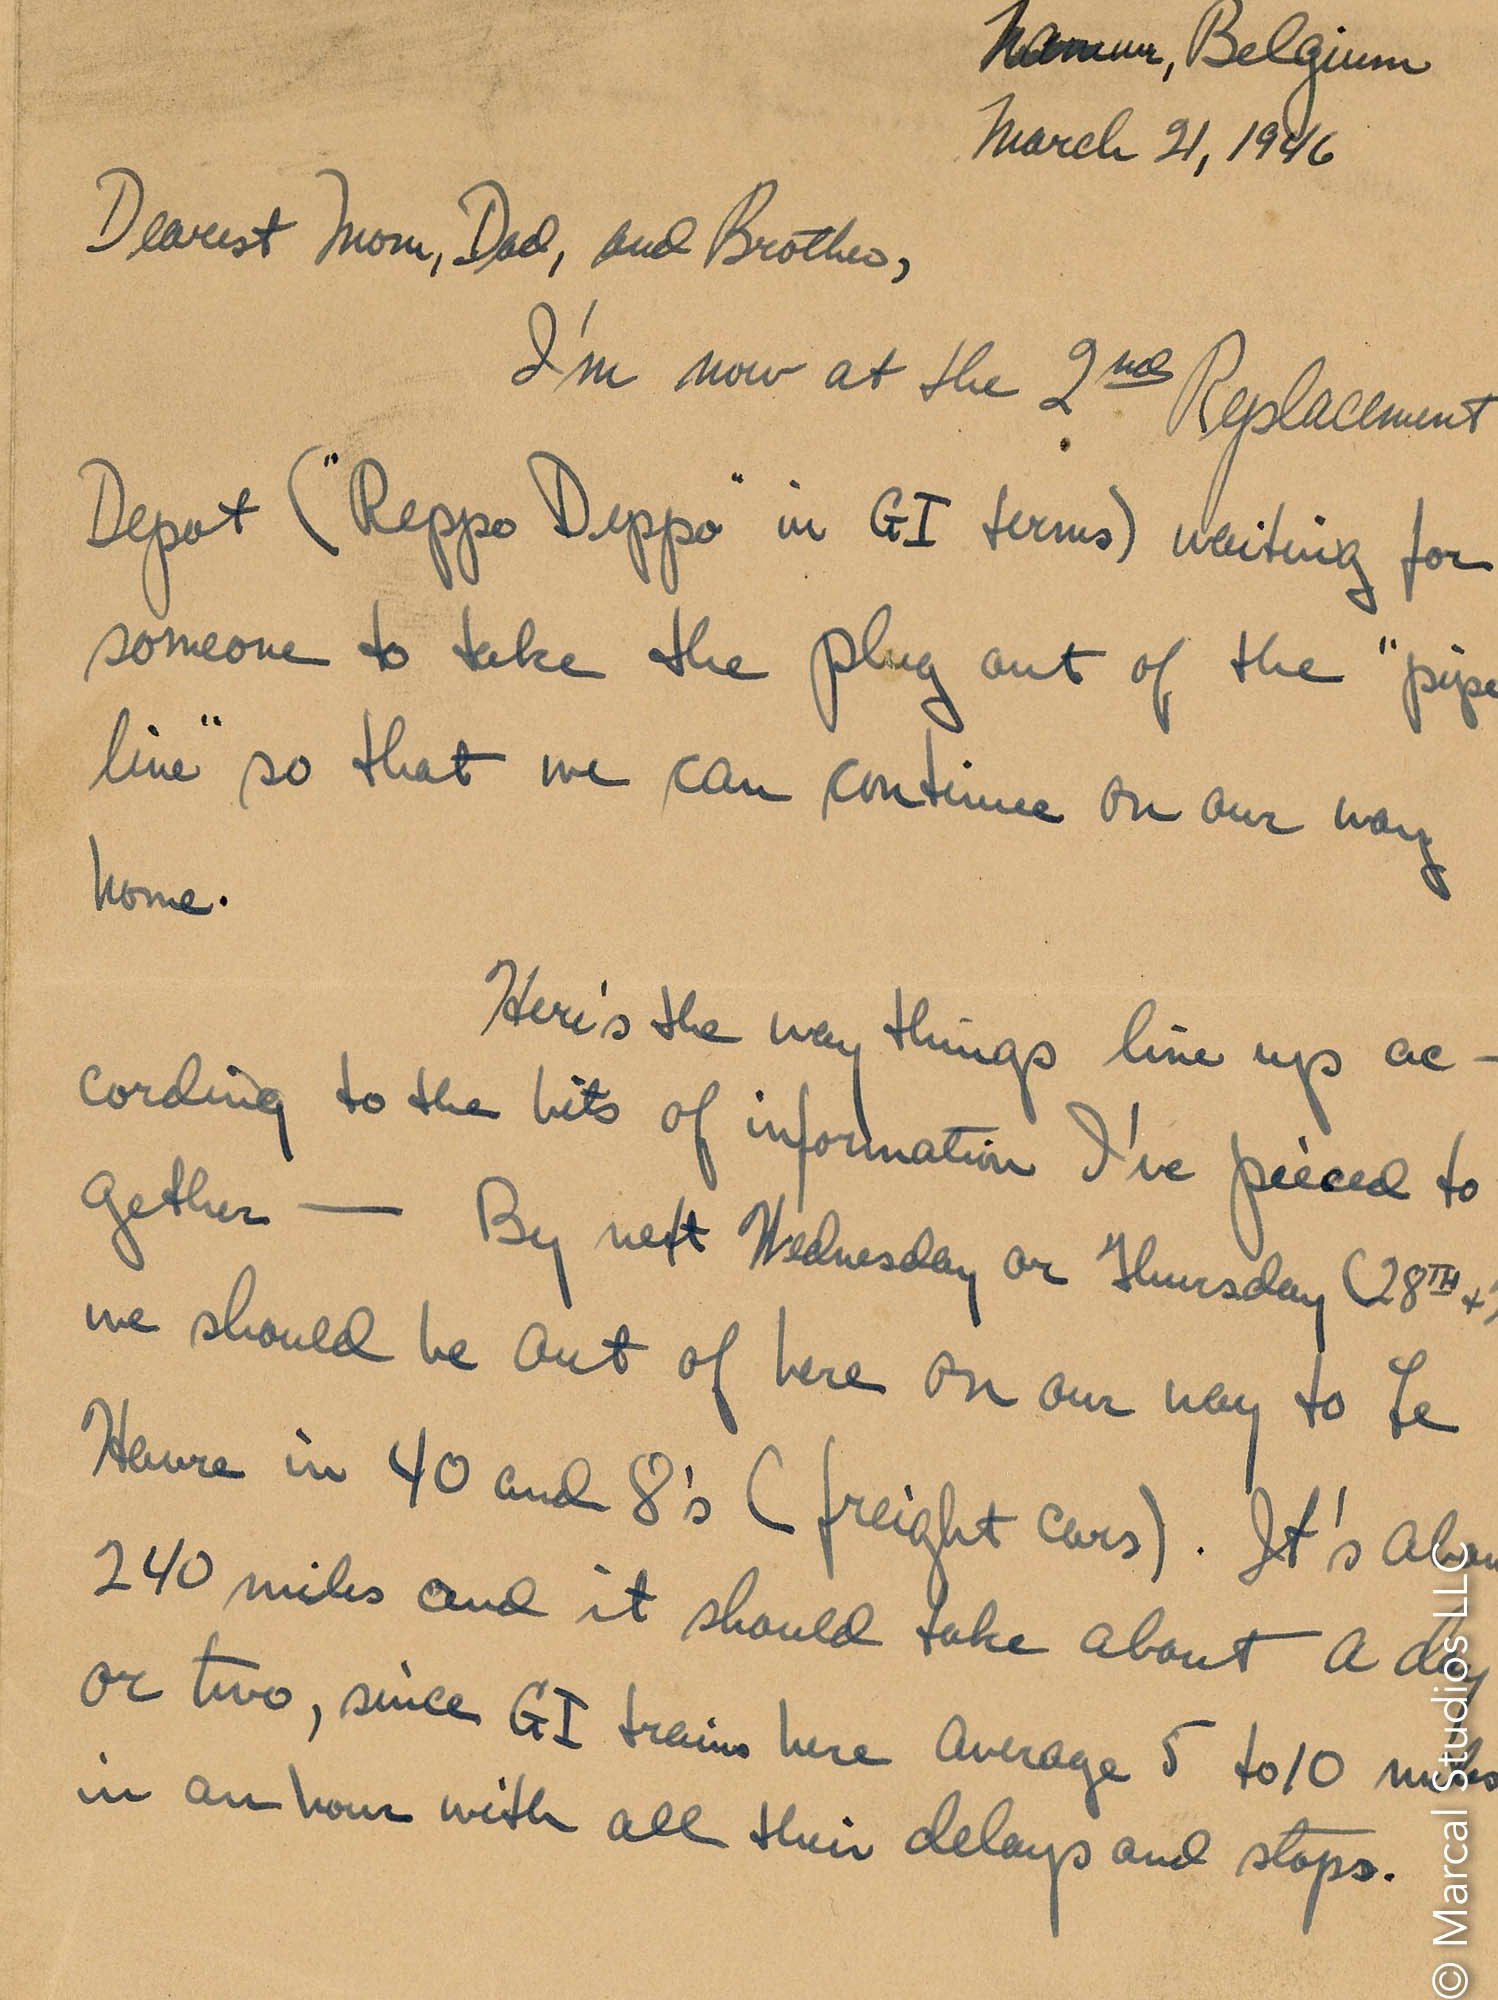 Namur, Belgium
March 21, 1946
Dearest Mom, Dad, and Brother,
I'm now at the 2nd Replacement
Depot ("Reppo Deppo" in GI terms) waiting for
someone to take the plug out of the "pipe
line" so that we can continue on our way
home.
Here's the way things line up ac-
cording to the bits of information I've pieced to
gether — By next Wednesday or Thursday (28TH +
we should be out of here on our way to Le
Havre in 40 and 8's (freight cars). It's abou
240 miles and it should take about a day
or two, since GI trains here average 5 to 10 miles
in an hour with all their delays and stops.
© Marcal Studios LLC